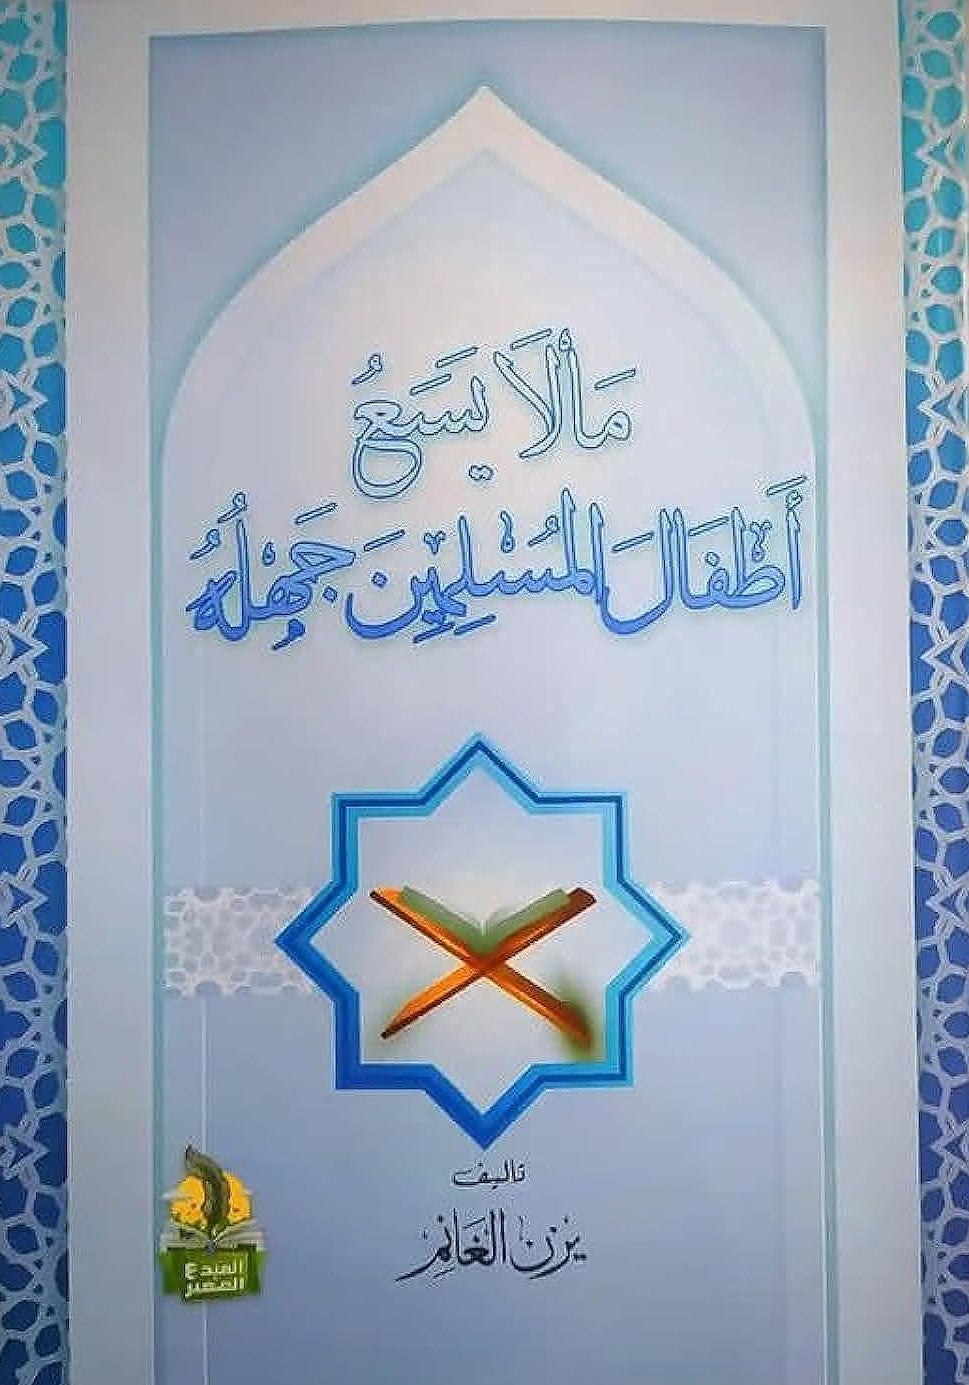 مَا لَا يَسَعُ
أَطْفَالَ المُسْلِمِينَ جَهْلُهُ
تأليف
يزن الغَانِم
المبدع
الصغير